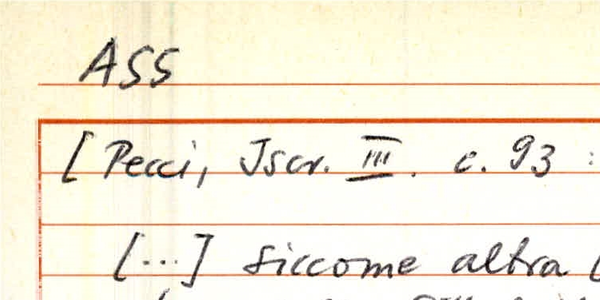 ASS
[Pecci, Iscr. III. c. 93:
[...] siccome altra [